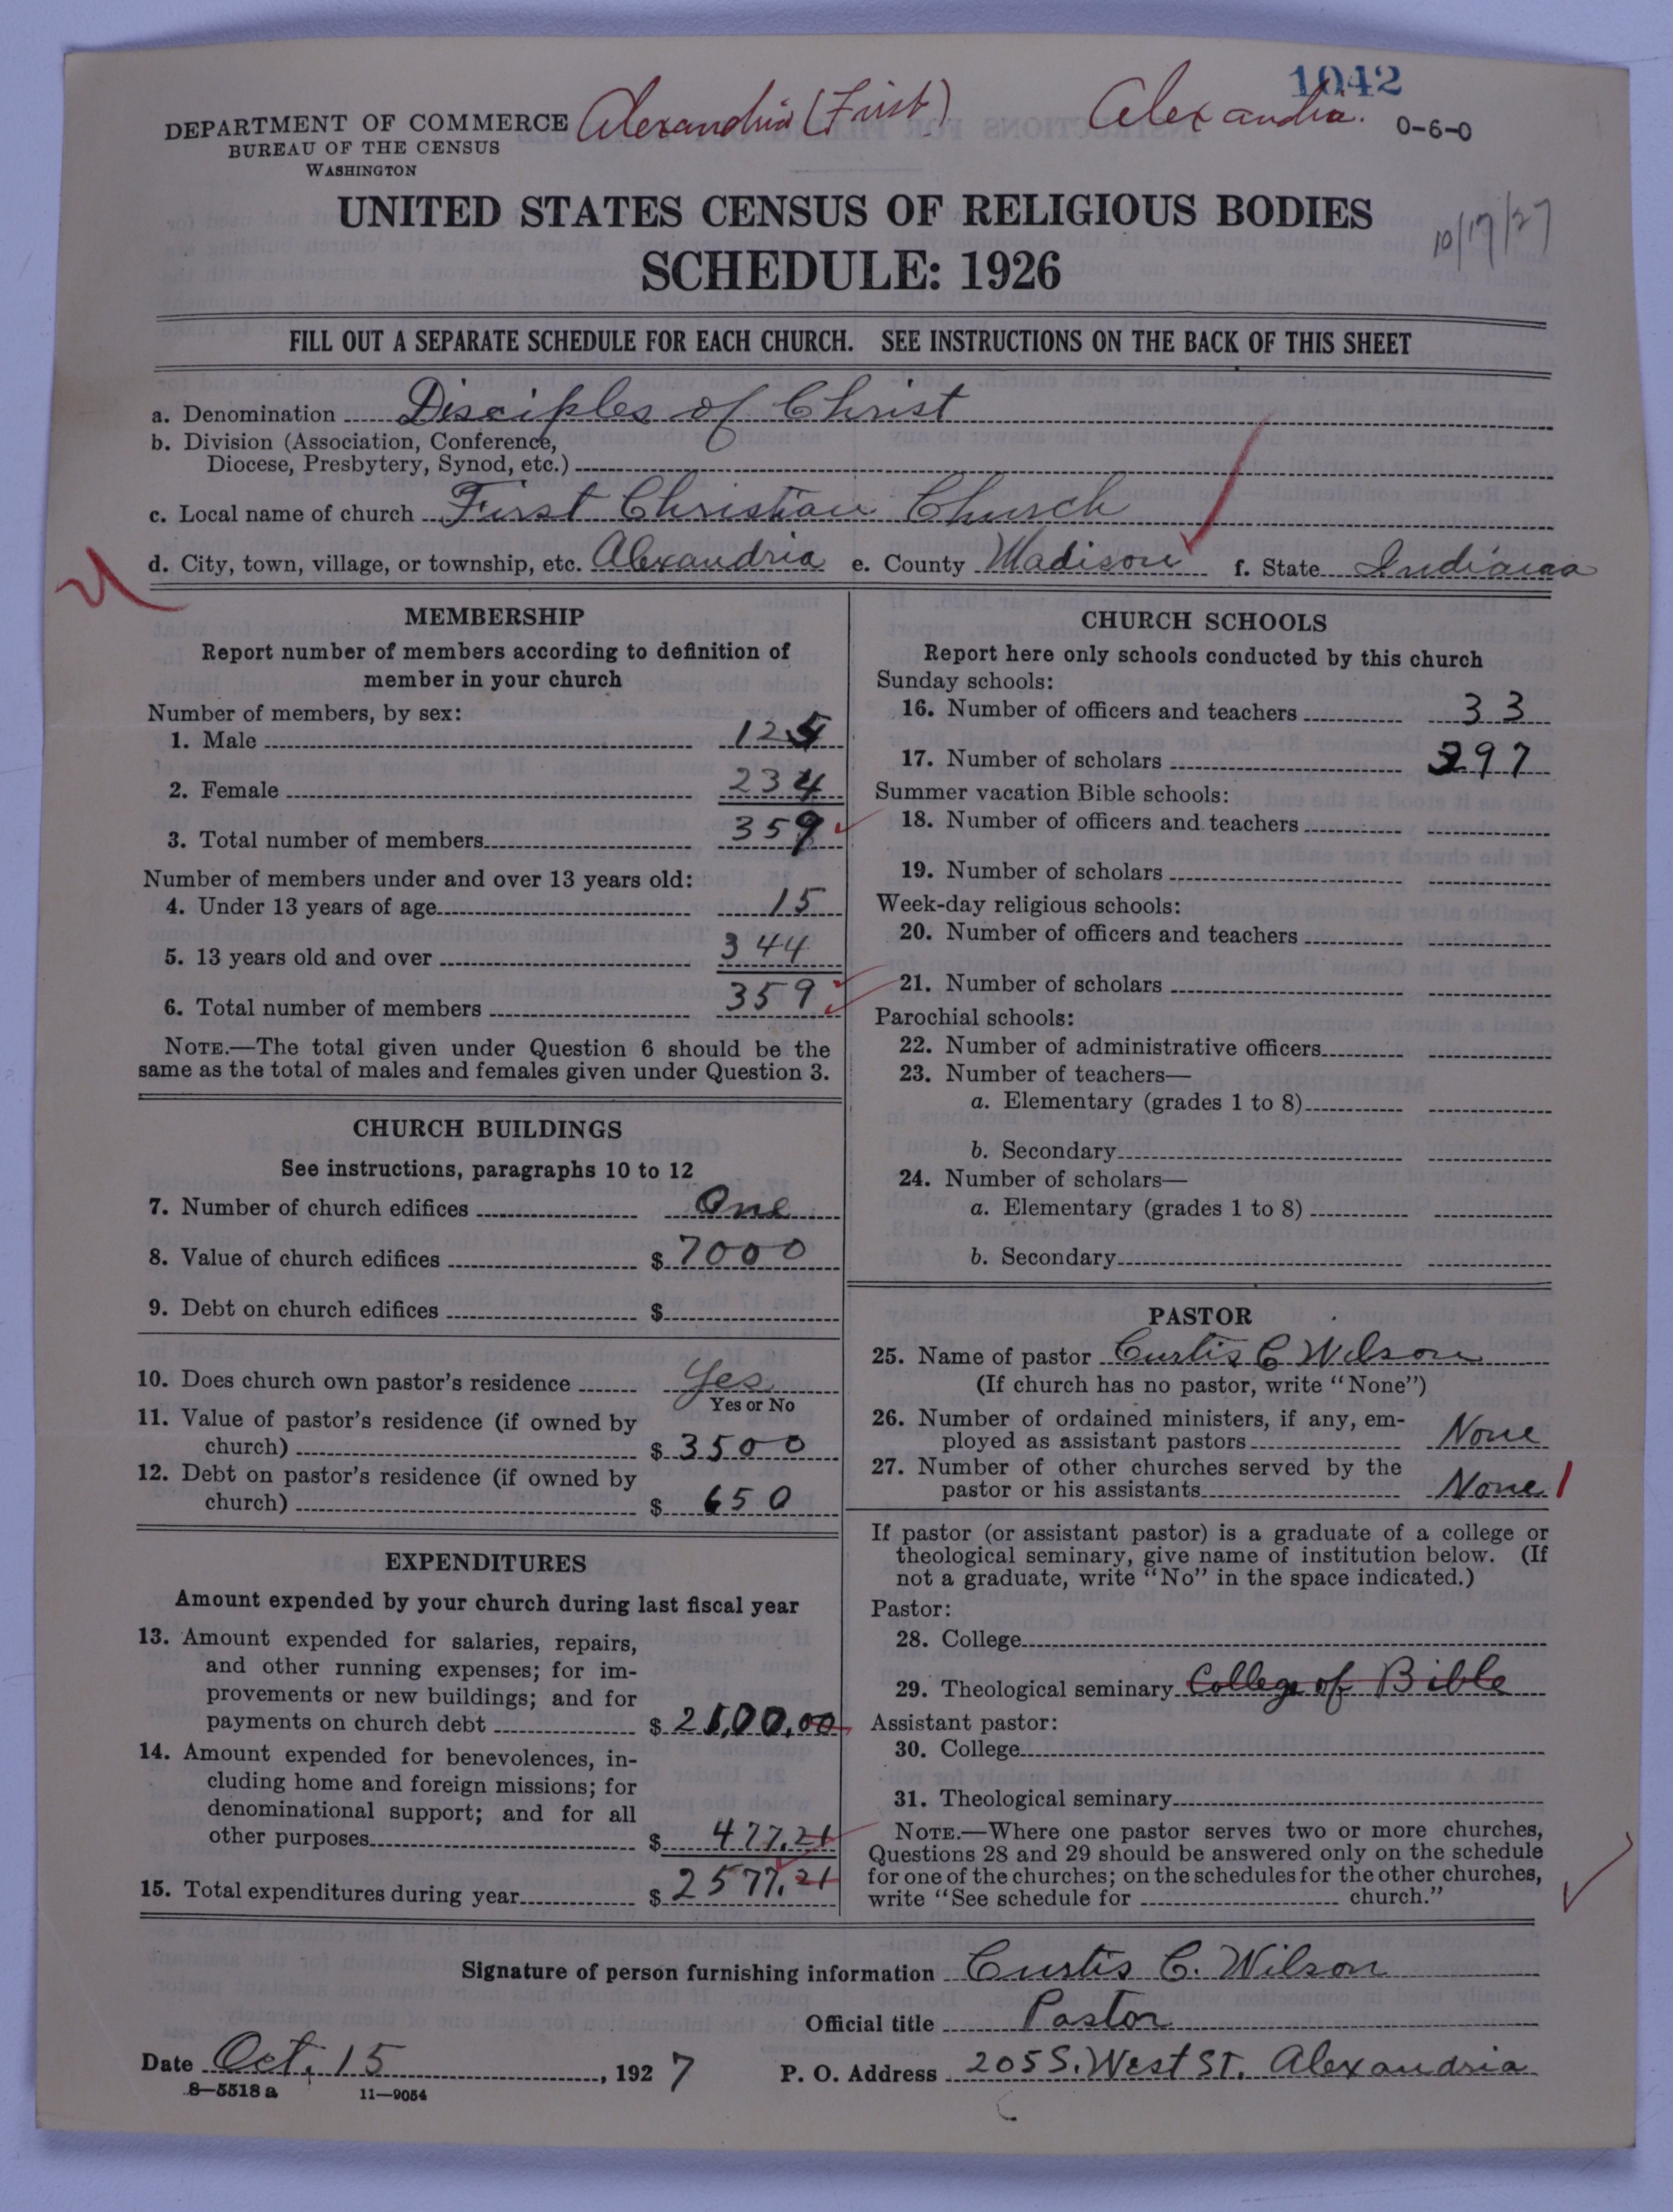 1042
Alexandria (First) Alexandria. 0-6-0
DEPARTMENT OF COMMERCE
BUREAU OF THE CENSUS
WASHINGTON
UNITED STATES CENSUS OF RELIGIOUS BODIES
SCHEDULE: 1926
10/17/27
FILL OUT A SEPARATE SCHEDULE FOR EACH CHURCH. SEE INSTRUCTIONS ON THE BACK OF THIS SHEET
a. Denomination Disciples of Christ
b. Division (Association, Conference,
Diocese, Presbytery, Synod, etc.)
c. Local name of church First Christian Church
d. City, town, village, or township, etc. Alexandria e. County Madison f. State Indiana
MEMBERSHIP
Report number of members according to definition of
member in your church
Number of members, by sex:
1. Male 125
2. Female 234
3. Total number of members 359
Number of members under and over 13 years old:
4. Under 13 years of age 15
5. 13 years old and over 344
6. Total number of members 359
NOTE.—The total given under Question 6 should be the
same as the total of males and females given under Question 3.
CHURCH BUILDINGS
See instructions, paragraphs 10 to 12
7. Number of church edifices One
8. Value of church edifices $ 7000
9. Debt on church edifices $
10. Does church own pastor's residence Yes
Yes or No
11. Value of pastor's residence (if owned by
church) $ 3500
12. Debt on pastor's residence (if owned by
church) $ 650
EXPENDITURES
Amount expended by your church during last fiscal year
13. Amount expended for salaries, repairs,
and other running expenses; for im-
provements or new buildings; and for
payments on church debt $ 2100.00
14. Amount expended for benevolences, in-
cluding home and foreign missions; for
denominational support; and for all
other purposes $ 477.21
15. Total expenditures during year $ 2577.21
CHURCH SCHOOLS
Report here only schools conducted by this church
Sunday schools:
16. Number of officers and teachers 33
17. Number of scholars 297
Summer vacation Bible schools:
18. Number of officers and teachers
19. Number of scholars
Week-day religious schools:
20. Number of officers and teachers
21. Number of scholars
Parochial schools:
22. Number of administrative officers
23. Number of teachers—
a. Elementary (grades 1 to 8)
b. Secondary
24. Number of scholars—
a. Elementary (grades 1 to 8)
b. Secondary
PASTOR
25. Name of pastor Curtis C Wilson
(If church has no pastor, write "None")
26. Number of ordained ministers, if any, em-
ployed as assistant pastors None
27. Number of other churches served by the
pastor or his assistants None 1
If pastor (or assistant pastor) is a graduate of a college or
theological seminary, give name of institution below. (If
not a graduate, write "No" in the space indicated.)
Pastor:
28. College
29. Theological seminary College of Bible
Assistant pastor:
30. College
31. Theological seminary
NOTE.—Where one pastor serves two or more churches,
Questions 28 and 29 should be answered only on the schedule
for one of the churches; on the schedules for the other churches,
write "See schedule for church."
Signature of person furnishing information Curtis C. Wilson
Official title Pastor
Date Oct. 15, 1927 P. O. Address 205 S. West St. Alexandria
8—5518 a 11—9054